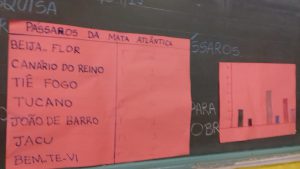 PÁSSAROS DA MATA ATLÂNTICA
BEIJA-FLOR
CANÁRIO DO REINO
TIÊ FOGO
TUCANO
JOÃO DE BARRO
JACU
BEM-TE-VI
SSAROS
PARA